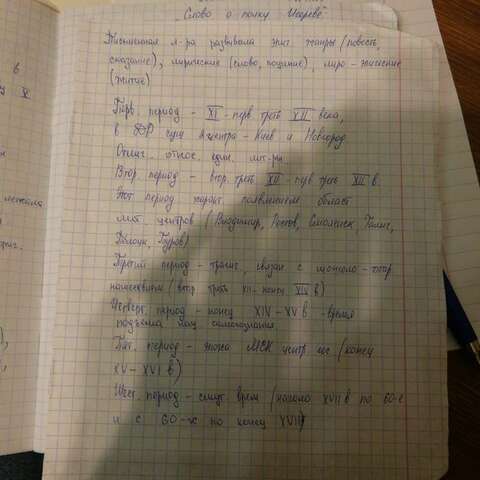 "Слово о полку Игореве"
Письменная л-ра развивала эпич. жанры (повесть,
сказание), лирические (слово, поучение), лиро-эпические
(житие)
Перв. период - XI - перв. треть XII века,
в ДР сущ 2 центра - Киев и Новгород
Отлич. относ. един. лит-ры
Втор. период - втор. треть XII - перв треть XIII в.
Этот период характ. появлением област
лит. центров (Владимир, Ростов, Смоленск, Галич,
Полоцк, Туров)
Третий период - трагич, связан с монголо-татар
нашествием (втор треть XII - конец XIV в)
Четверт. период - конец XIV - XV в - время
подъема нац самосознания
Пят. период - эпоха МСК центр. гос (конец
XV - XVI в)
Шест. период - смут. врем (начало XVII в по 60-е
и с 60-х по конец XVII)
в
X